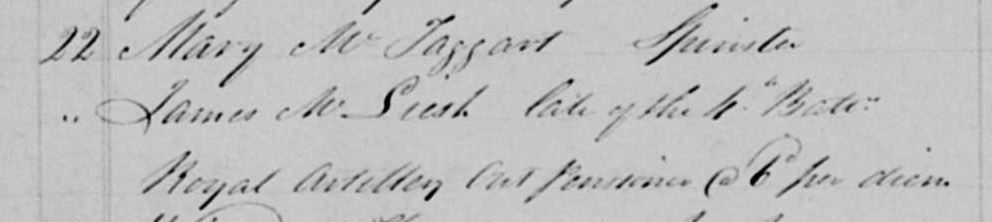 22 Mary Mc Taggart Spinster
" James Mc Liesh late of the 4th Batn
Royal Artillery Out Pensioner @ 6d per diem